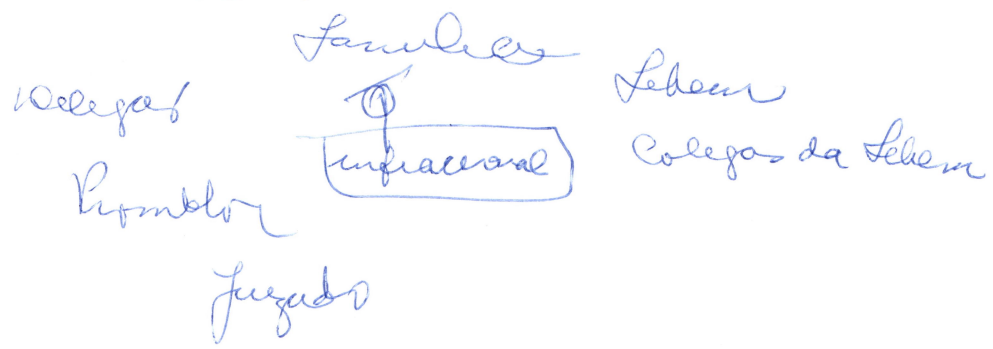 Família
Delegaf
Febem
infracional
Colegas da Febem
Promotor
Juizado